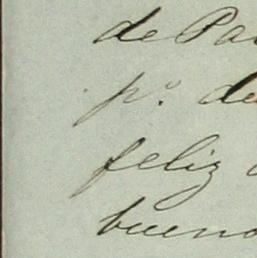 de Pa
p.º de
feliz
buen